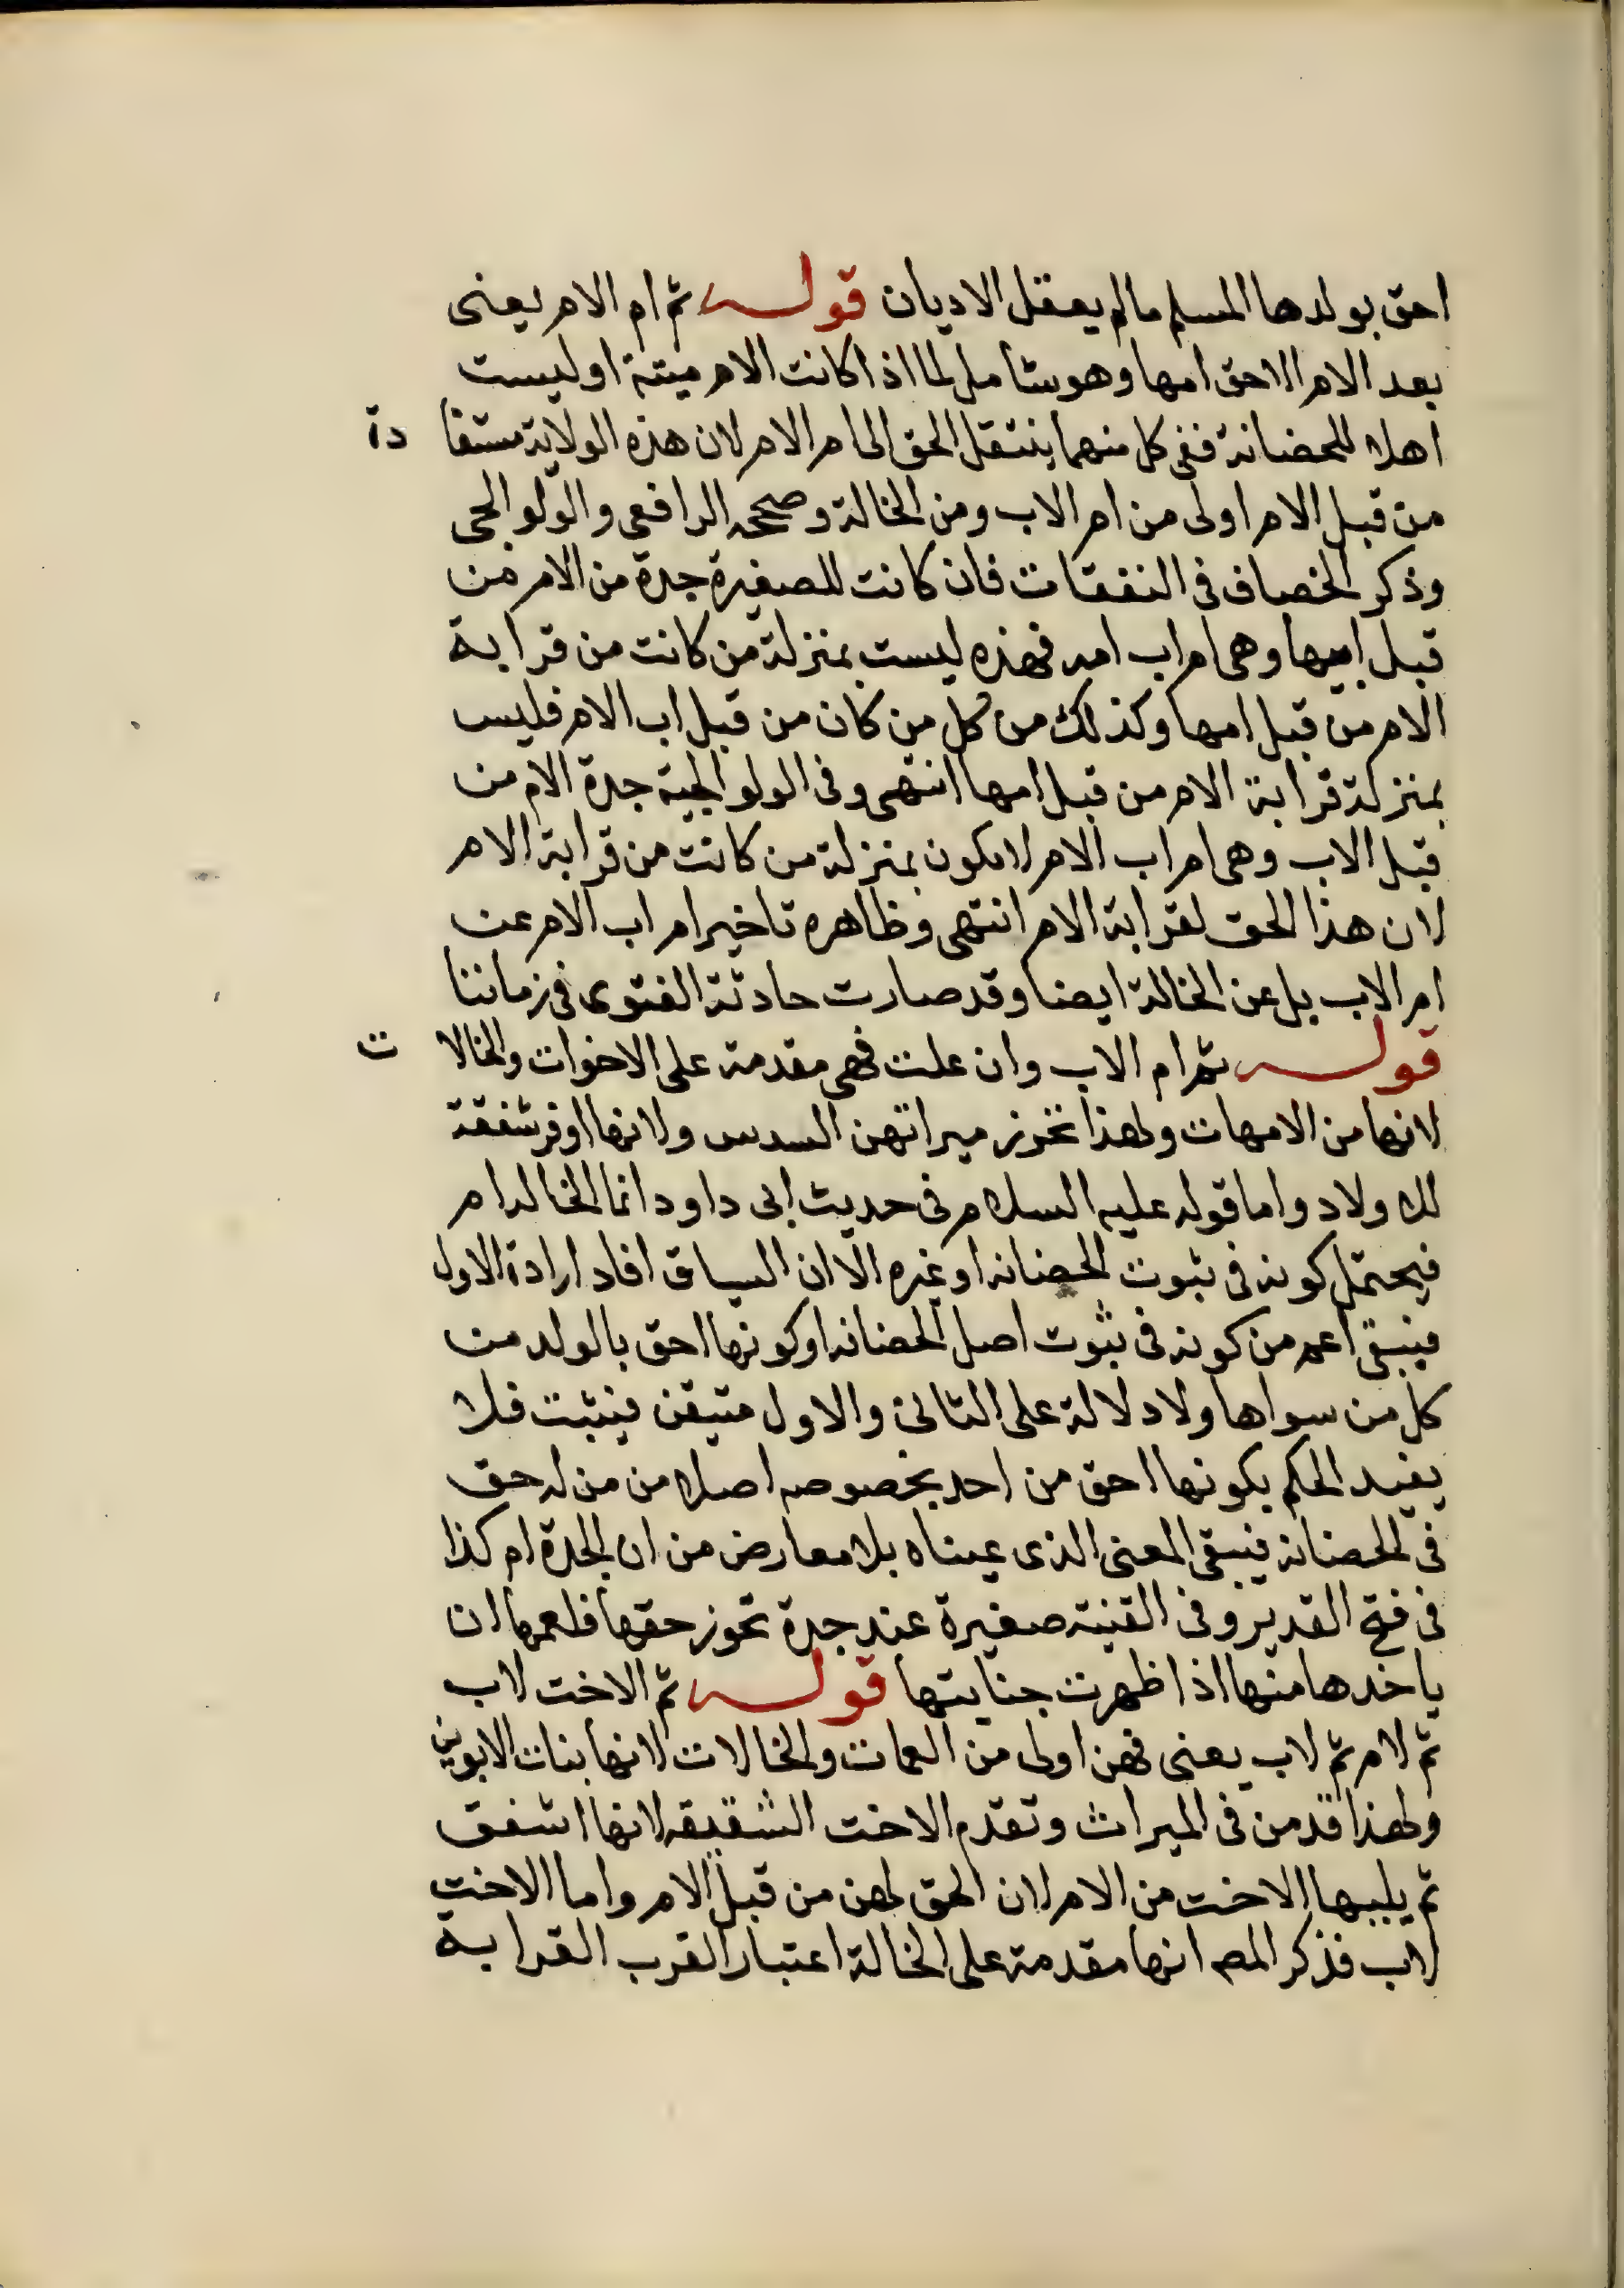 احق بولدها المسلم ما لم يعقل الاديان قوله ثم ام الام يعنى
بعد الام الاحق امها وهو شامل لما اذا كانت الام ميتة او ليست
اهلا للحضانة ففى كل منهما ينتقل الحق الى ام الام لان هذه الولاية مستفا دة
من قبل الام اولى من ام الاب ومن الخالة وصححه الرافعى والولوالجى
وذكر الخصاف فى النفقات فان كانت للصغيرة جدة من الام من
قبل ابيها وهى ام اب امه فهذه ليست بمنزلة من كانت من قرابة
الام من قبل امها وكذلك من كل من كان من قبل اب الام فليس
بمنزلة قرابة الام من قبل امها انتهى وفى الولوالجية جدة الام من
قبل الاب وهى ام اب الام لا يكون بمنزلة من كانت من قرابة الام
لان هذا الحق لقرابة الام انتهى وظاهره تاخير ام اب الام عن
ام الاب بل عن الخالة ايضا وقد صارت حادثة الفتوى فى زماننا
قوله ثم ام الاب وان علت فهى مقدمة على الاخوات والخالا ت
لانها من الامهات ولهذا تحوز ميراثهن السدس ولانها اوفر شفقة
للاولاد واما قوله عليه السلام فى حديث ابى داود انما الخالة ام
فيحتمل كونه فى ثبوت الحضانة او غيره الا ان السياق افاد ارادة الاول
فيبقى اعم من كونه فى ثبوت اصل الحضانة او كونها احق بالولد من
كل من سواها ولا دلالة على الثانى والاول متيقن فيثبت فلا
يفيد الحكم بكونها احق من احد بخصوصه اصلا من من له حق
فى الحضانة فيبقى المعنى الذى عيناه بلا معارض من ان الجدة ام كذا
فى فتح القدير وفى القنية صغيرة عند جدة تخوز حقها فلعمها ان
ياخدها منها اذا ظهرت جنايتها قوله ثم الاخت لاب
ثم لام ثم لاب يعنى فهن اولى من العمات والخالات لانها بنات الابوين
ولهذا قدمن فى الميراث وتقدم الاخت الشقيقه لانها اشفق
ثم يليها الاخت من الام لان الحق لهن من قبل الام واما الاخت
لاب فذكر المص انها مقدمة على الخالة اعتبار القرب القرابة